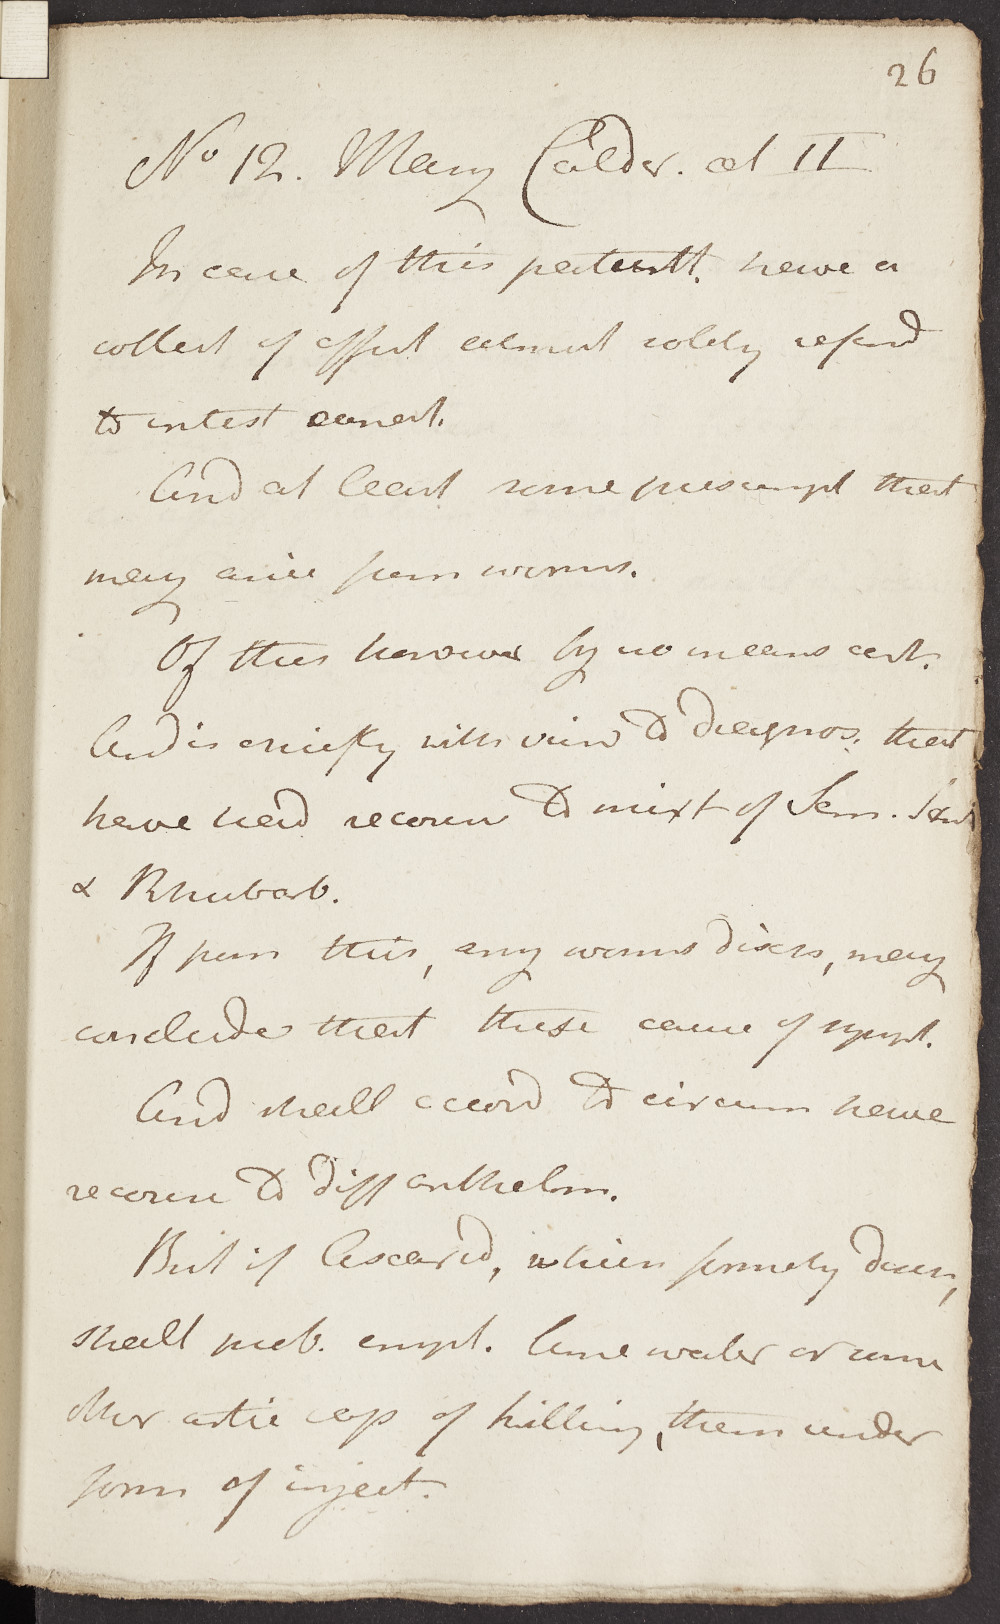 26
No 12. Mary Calder. æt 11
In case of this patient. have a
collect of affect almost solely referd
to intest canal.
And at least some presumpt that
may arise from worms.
Of this however by no means cert.
And is chiefly with view to diagnos. that
have had recourse to mixt of Sem. Sant
& Rhubarb.
If from this, any worms discov, may
conclude that these cause of sympt.
And shall accord to circum have
recourse to diff anthelm.
But if Ascarid, which formerly discov,
shall prob. empl. lime water or some
other artic cap of killing, them under
form of inject.